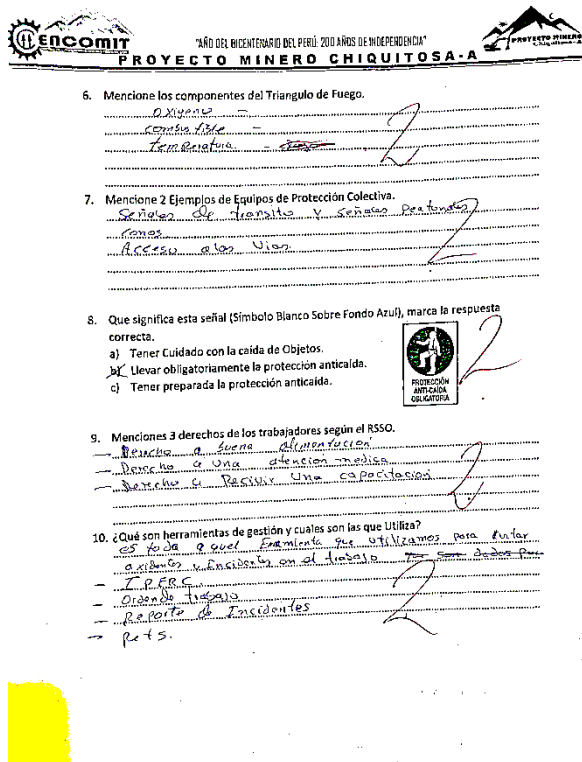 ENCOMIT
"AÑO DEL BICENTENARIO DEL PERÚ: 200 AÑOS DE INDEPENDENCIA"
PROYECTO MINERO
PROYECTO MINERO CHIQUITOSA-A
6. Mencione los componentes del Triangulo de Fuego.
oxigeno -
combustible -
temperatura -
2
7. Mencione 2 Ejemplos de Equipos de Protección Colectiva.
Señales de transito y señales peatonales
conos
Acceso a las Vias
2
8. Que significa esta señal (Símbolo Blanco Sobre Fondo Azul), marca la respuesta
correcta.
a) Tener Cuidado con la caída de Objetos.
b) Llevar obligatoriamente la protección anticaída.
c) Tener preparada la protección anticaída.
PROTECCIÓN
ANTI-CAÍDA
OBLIGATORIA
2
9. Menciones 3 derechos de los trabajadores según el RSSO.
- Derecho a buena alimentacion
- Derecho a una atencion medica
- Derecho a Recivir una capacitacion
2
10. ¿Qué son herramientas de gestión y cuales son las que Utiliza?
es toda aquel que utilizamos para Evitar
axidentes y Encidentes en el trabajo
- IPERC
- Orden de trabajo
- Reporte de Incidentes
- Pets.
2